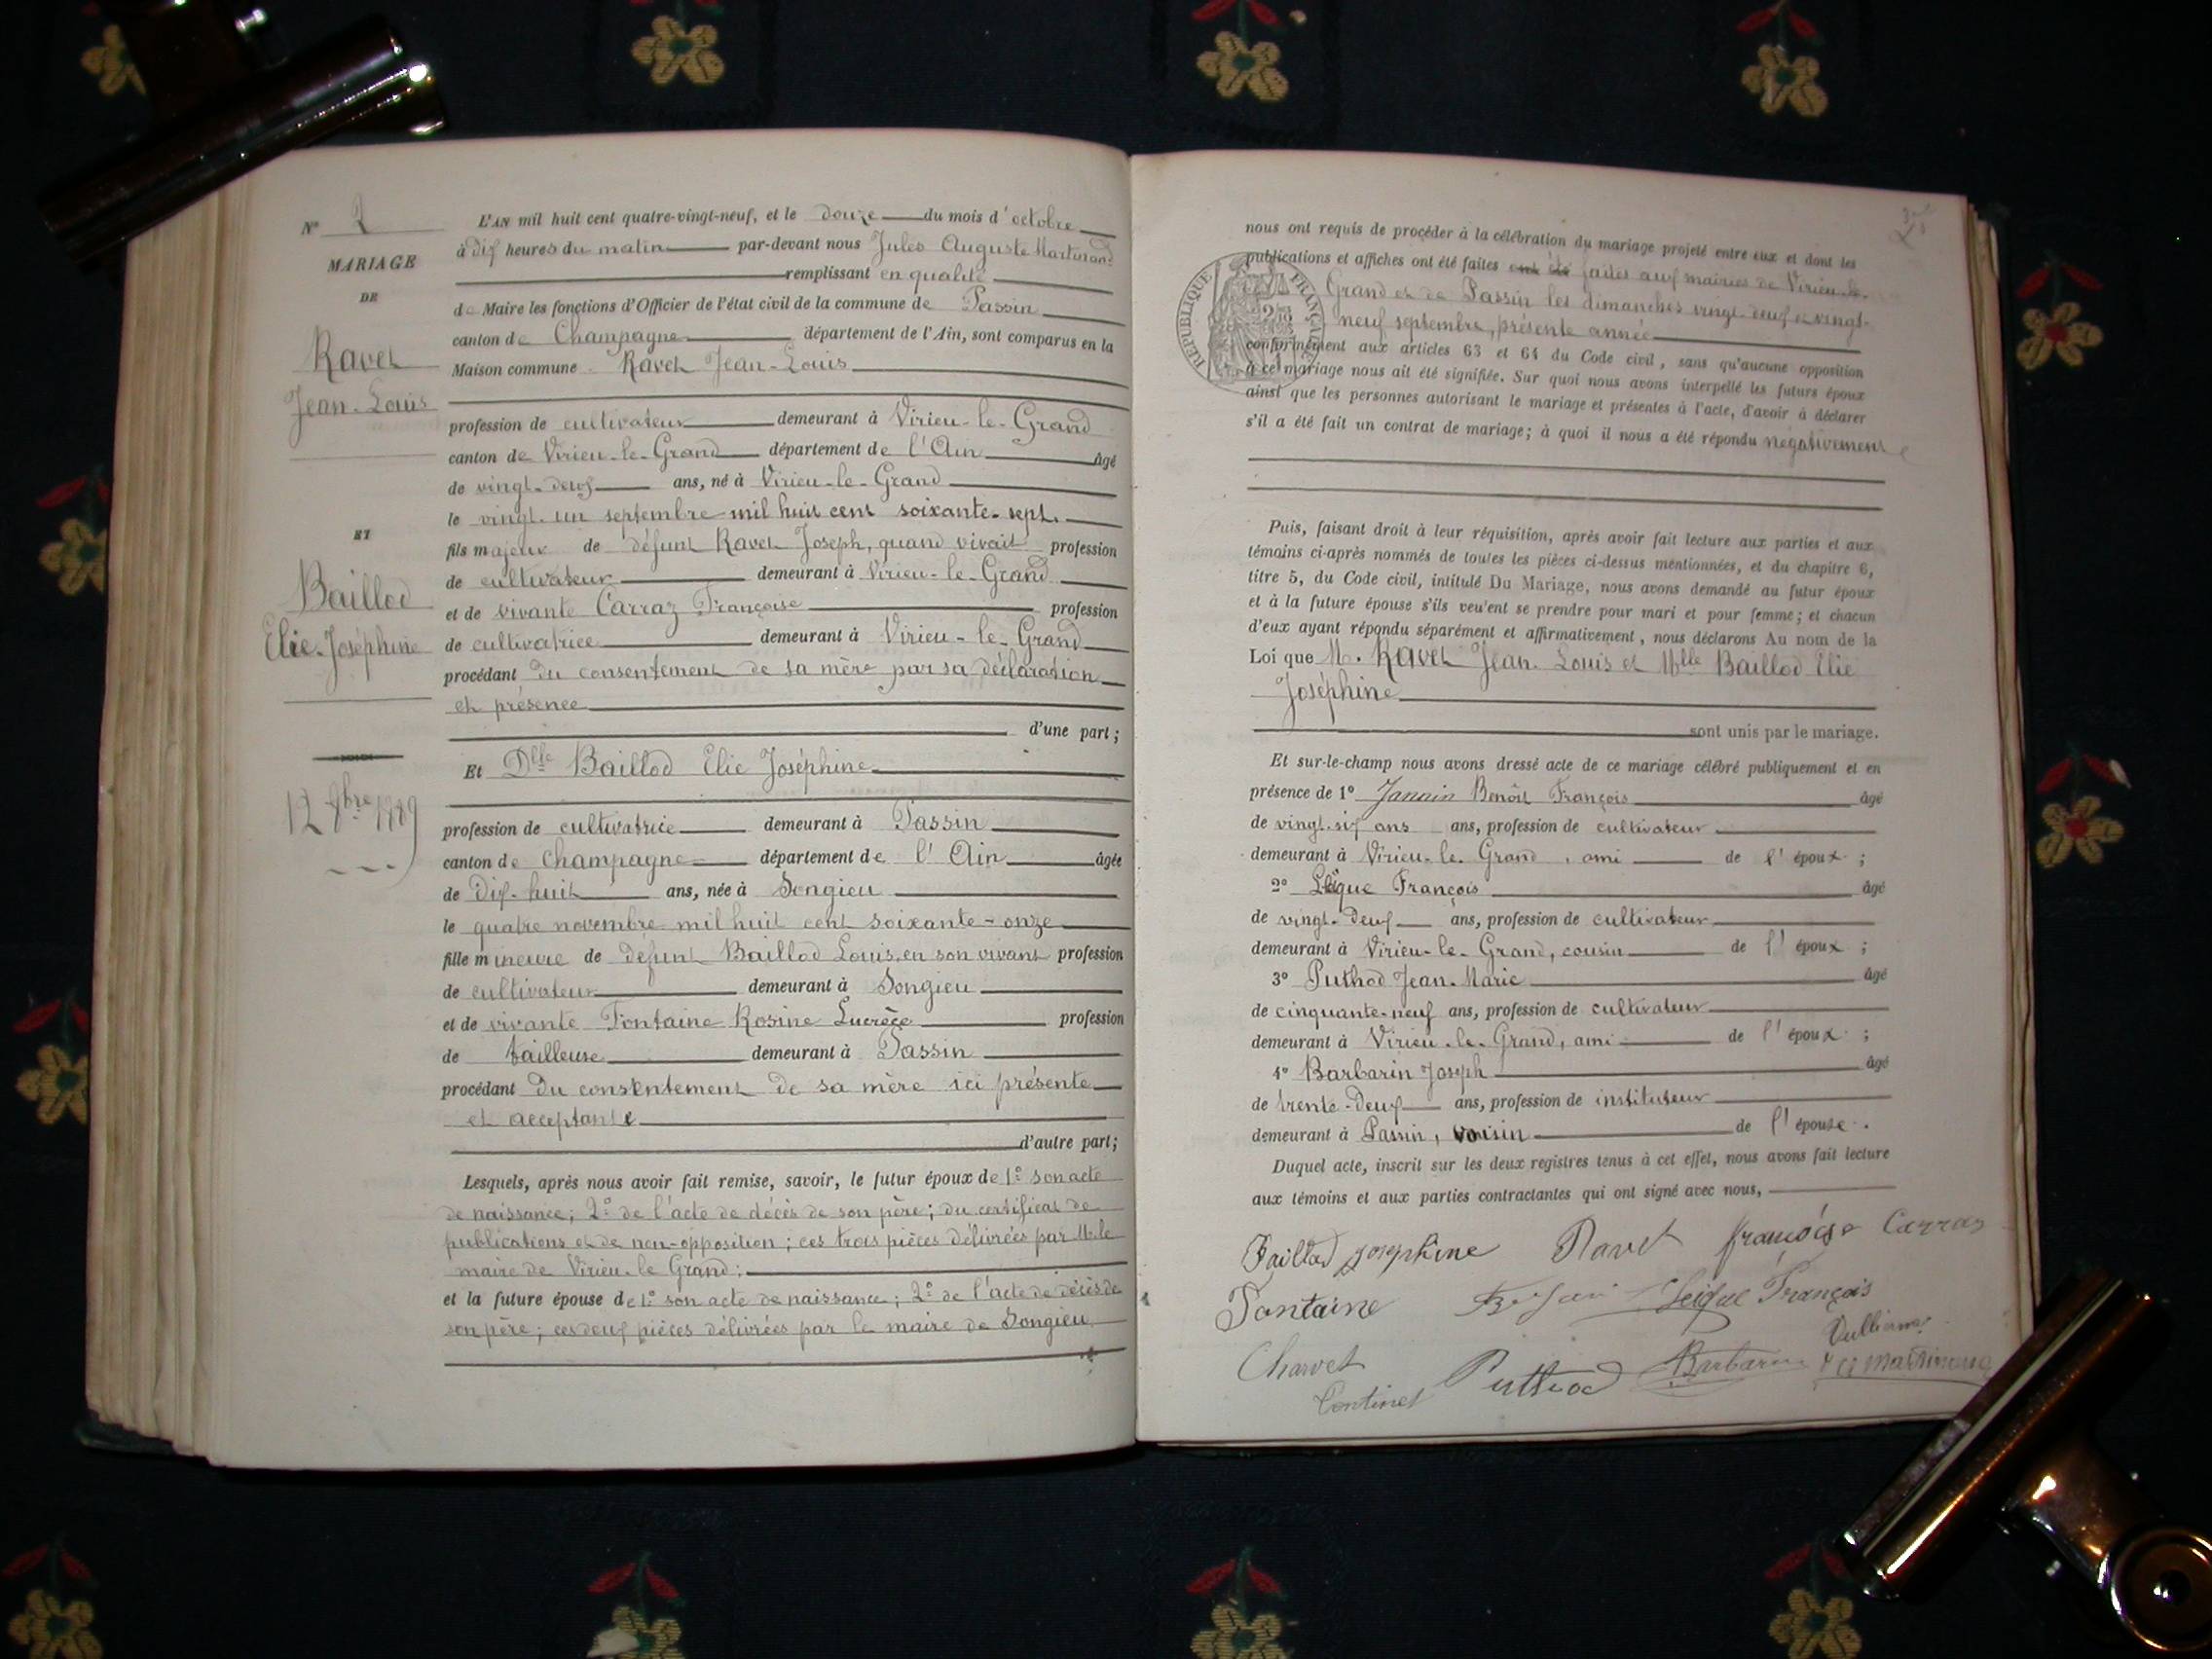 N° 2
MARIAGE
DE
Ravet
Jean-Louis
ET
Baillod
Elie-Joséphine
12 8bre 1889
L'AN mil huit cent quatre-vingt-neuf, et le douze du mois d'octobre
à dix heures du matin par-devant nous Jules Auguste Martinand
remplissant en qualité
de Maire les fonctions d'Officier de l'état civil de la commune de Passin
canton de Champagne département de l'Ain, sont comparus en la
Maison commune Ravet Jean-Louis
profession de cultivateur demeurant à Virieu-le-Grand
canton de Virieu-le-Grand département de l'Ain âgé
de vingt-deux ans, né à Virieu-le-Grand
le vingt-un septembre mil huit cent soixante-sept.
fils majeur de défunt Ravet Joseph, quand vivait profession
de cultivateur demeurant à Virieu-le-Grand
et de vivante Carraz Françoise profession
de cultivatrice demeurant à Virieu-le-Grand
procédant du consentement de sa mère par sa déclaration
et présence
d'une part;
Et Dlle Baillod Elie Joséphine
profession de cultivatrice demeurant à Passin
canton de Champagne département de l'Ain âgée
de dix-huit ans, née à Songieu
le quatre novembre mil huit cent soixante-onze
fille mineure de défunt Baillod Louis, en son vivant profession
de cultivateur demeurant à Songieu
et de vivante Fontaine Rosine Lucrèce profession
de tailleuse demeurant à Passin
procédant du consentement de sa mère ici présente
et acceptante
d'autre part;
Lesquels, après nous avoir fait remise, savoir, le futur époux de 1° son acte
de naissance; 2° de l'acte de décès de son père; du certificat de
publications et de non-opposition; ces trois pièces délivrées par M. le
maire de Virieu-le Grand;
et la future épouse de 1° son acte de naissance; 2° de l'acte de décès de
son père; ces deux pièces délivrées par le maire de Songieu
nous ont requis de procéder à la célébration du mariage projeté entre eux et dont les
publications et affiches ont été faites ont été faites aux mairies de Virieu-le-
Grand et de Passin les dimanches vingt-deux et vingt-
neuf septembre, présente année
conformément aux articles 63 et 64 du Code civil, sans qu'aucune opposition
à ce mariage nous ait été signifiée. Sur quoi nous avons interpellé les futurs époux
ainsi que les personnes autorisant le mariage et présentes à l'acte, d'avoir à déclarer
s'il a été fait un contrat de mariage; à quoi il nous a été répondu négativement
RÉPUBLIQUE FRANÇAISE
Puis, faisant droit à leur réquisition, après avoir fait lecture aux parties et aux
témoins ci-après nommés de toutes les pièces ci-dessus mentionnées, et du chapitre 6,
titre 5, du Code civil, intitulé Du Mariage, nous avons demandé au futur époux
et à la future épouse s'ils veulent se prendre pour mari et pour femme; et chacun
d'eux ayant répondu séparément et affirmativement, nous déclarons Au nom de la
Loi que M. Ravet Jean-Louis et Mlle Baillod Elie
Joséphine
sont unis par le mariage.
Et sur-le-champ nous avons dressé acte de ce mariage célébré publiquement et en
présence de 1° Janain Benôit François âgé
de vingt-six ans ans, profession de cultivateur
demeurant à Virieu-le-Grand, ami de l'époux;
2° François âgé
de vingt-deux ans, profession de cultivateur
demeurant à Virieu-le-Grand, cousin de l'époux;
3° Puthod Jean-Marie âgé
de cinquante-neuf ans, profession de cultivateur
demeurant à Virieu-le-Grand, ami de l'époux;
4° Barbarin Joseph âgé
de trente-deux ans, profession de instituteur
demeurant à Passin, voisin de l'épouse.
Duquel acte, inscrit sur les deux registres tenus à cet effet, nous avons fait lecture
aux témoins et aux parties contractantes qui ont signé avec nous,
Baillod Josephine Ravet françoise Carraz
Fontaine François
Charvet Puthod Barbarin